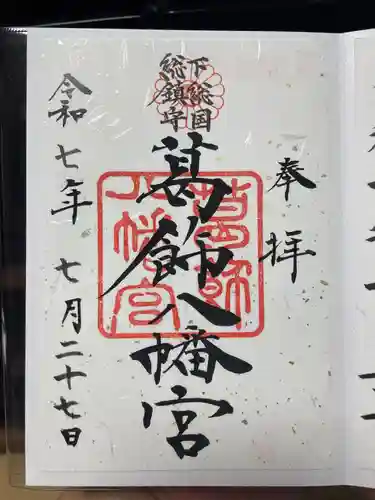 奉拝
下総国
総鎮守
葛飾八幡宮
葛飾
八幡宮
令和七年 七月二十七日